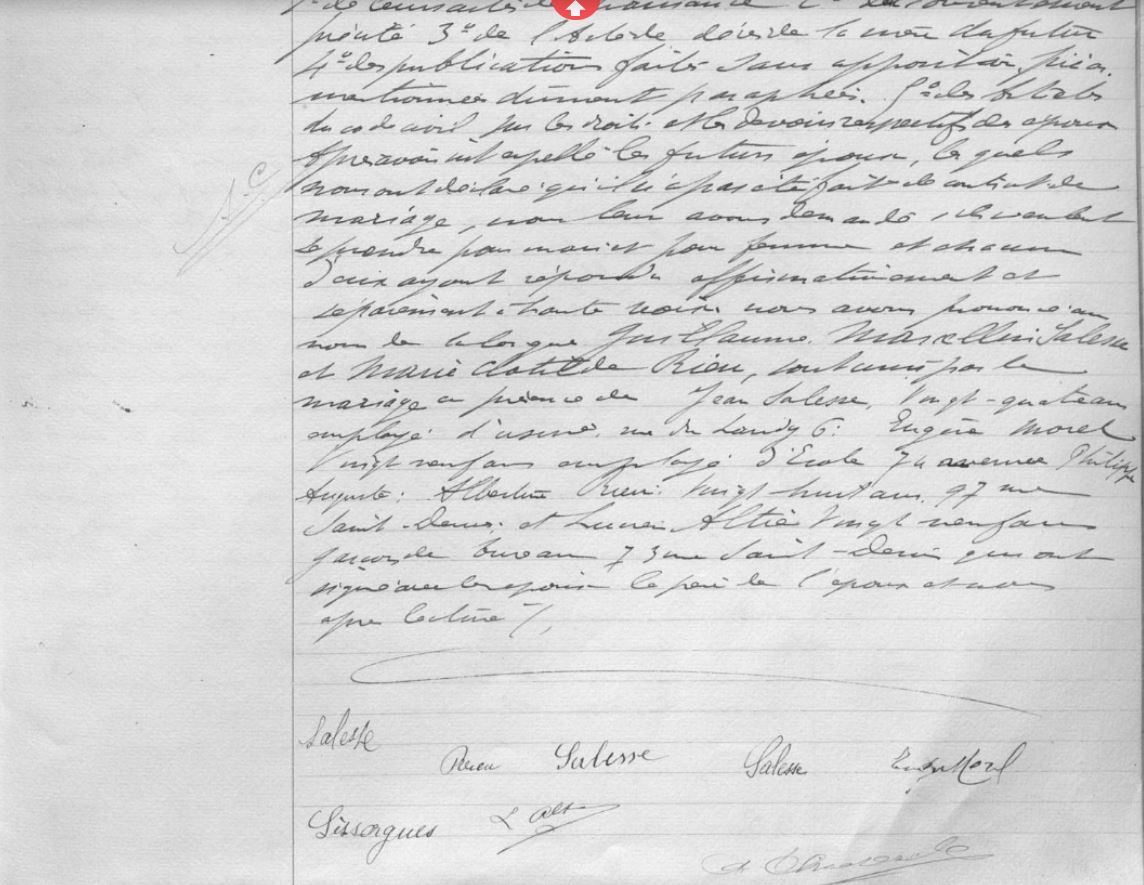 1° de leurs actes de naissance 2° du consentement
précité 3° de l'acte de décès de la mère du futur
4° des publications faites sans opposition, pièces
mentionnées dûment paraphées. 5° des articles
du code civil sur les droits et les devoirs respectifs des époux
Après avoir interpellé les futurs époux, lesquels
nous ont déclaré qu'il n'a pas été fait de contrat de
mariage, nous leur avons demandé s'ils veulent
se prendre pour mari et pour femme et chacun
d'eux ayant répondu affirmativement et
séparément à haute voix nous avons prononcé au
nom de la loi que Guillaume Marcellin Salesse
et Marie Clotilde Rieu, sont unis par le
mariage en présence de Jean Salesse, vingt-quatre ans
employé d'usine, rue du Landy 6: Eugène Morel
Vingt neuf ans employé d'Ecole 74 avenue Philippe
Auguste: Albertine Rieu: vingt huit ans, 97 rue
Saint-Denis, et Lucien Vingt neuf ans
garçon de bureau 73 rue Saint-Denis qui ont
signé avec les époux le père de l'époux et nous
après lecture /,
Salesse
Rieu Salesse Salesse Eug Morel
Sissorgues L Alt